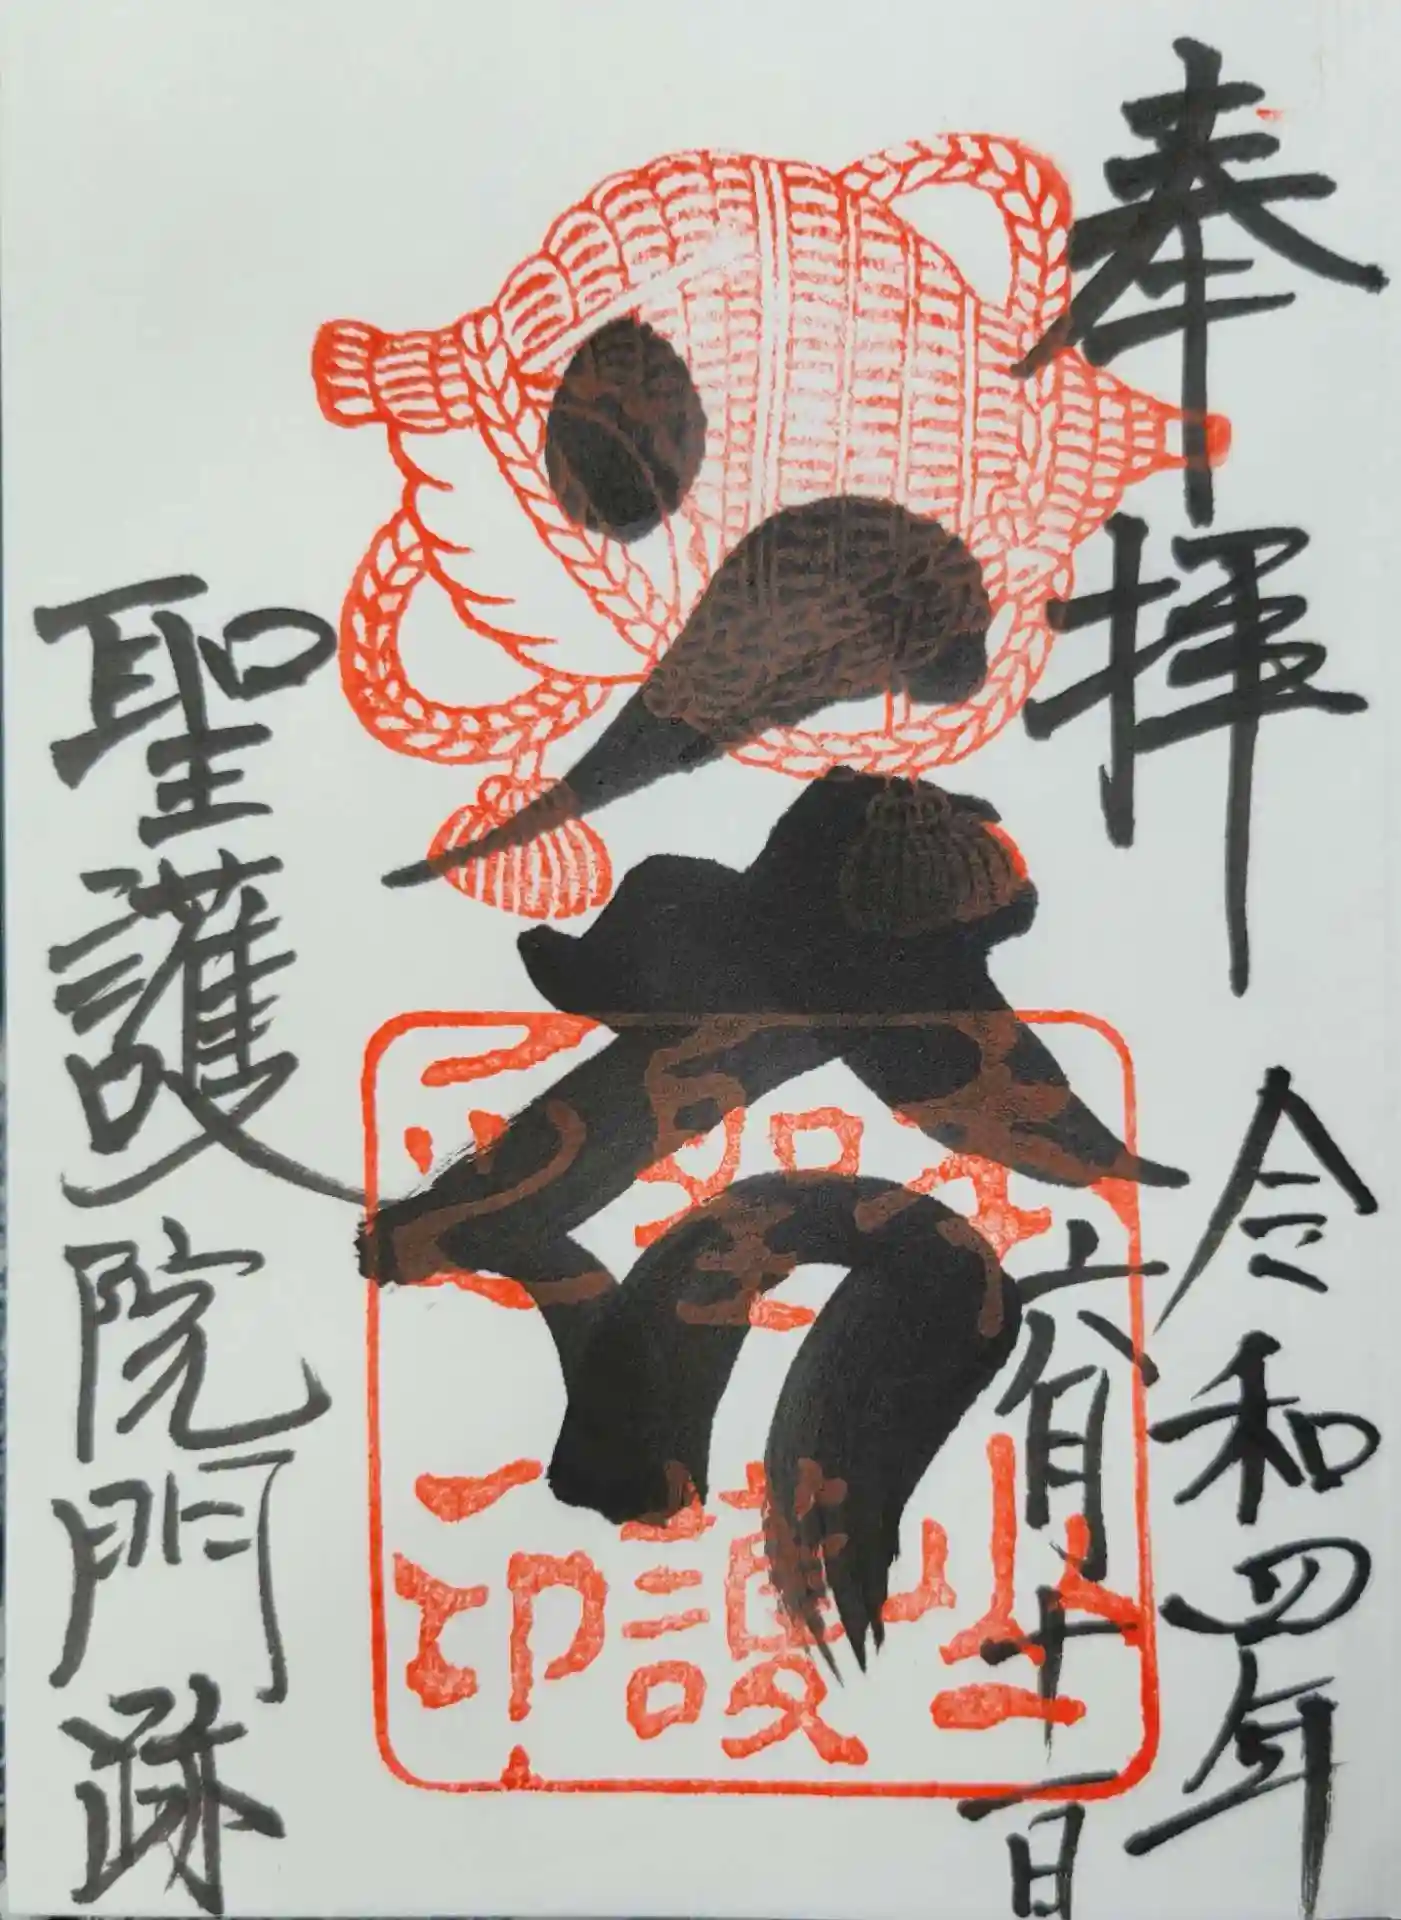 奉拝
令和四年
六月十一日
本山
聖護
院印
聖護院門跡